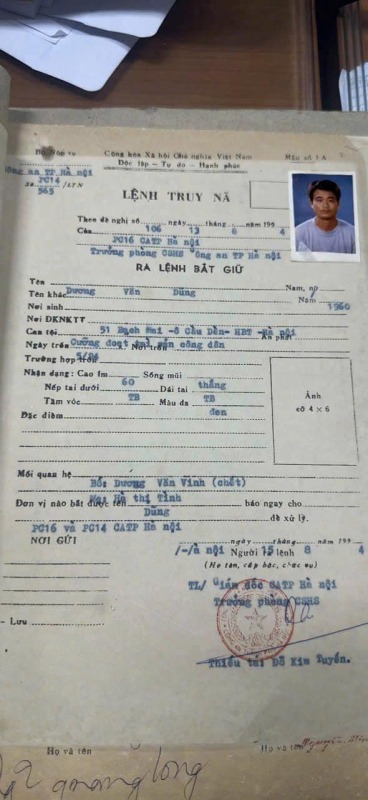 Bộ Nội vụ
Cộng hòa Xã hội Chủ nghĩa Việt Nam
Mẫu số 1A
Công an TP Hà nội
Độc lập - Tự do - Hạnh phúc
PC14
Số 565 /LTN
LỆNH TRUY NÃ
Theo đề nghị số 106 ngày 13 tháng 8 năm 1994
Của PC16 CATP Hà nội
Trưởng phòng CSHS Công an TP Hà nội
RA LỆNH BẮT GIỮ
Tên Dương Văn Dũng Nam, nữ
Tên khác Năm 1960
Nơi sinh
Nơi ĐKNKTT 51 Bạch Mai - ô Cầu Dền- HBT -Hà nội
Can tội Cưỡng đoạt tài sản công dân Án phạt
Ngày trốn 5/94 Nơi trốn
Trường hợp trốn
Nhận dạng: Cao 1m 60 Sống mũi thẳng
Nếp tai dưới TB Dái tai TB
Tầm vóc Màu da đen
Đặc điểm
Ảnh
cỡ 4 × 6
Mối quan hệ Bố: Dương Văn Vinh (chết)
Mẹ: Hà thị Tình
Đơn vị nào bắt được tên Dũng báo ngay cho
PC16 và PC14 CATP Hà nội để xử lý.
NƠI GỬI
Hà nội ngày 15 tháng 8 năm 1994
Người ra lệnh
(Họ tên, cấp bậc, chức vụ)
TL/ Giám đốc CATP Hà nội
Trưởng phòng CSHS
Thiếu tá: Đỗ Kim Tuyến.
- Lưu
Họ và tên
Họ và tên
quang long